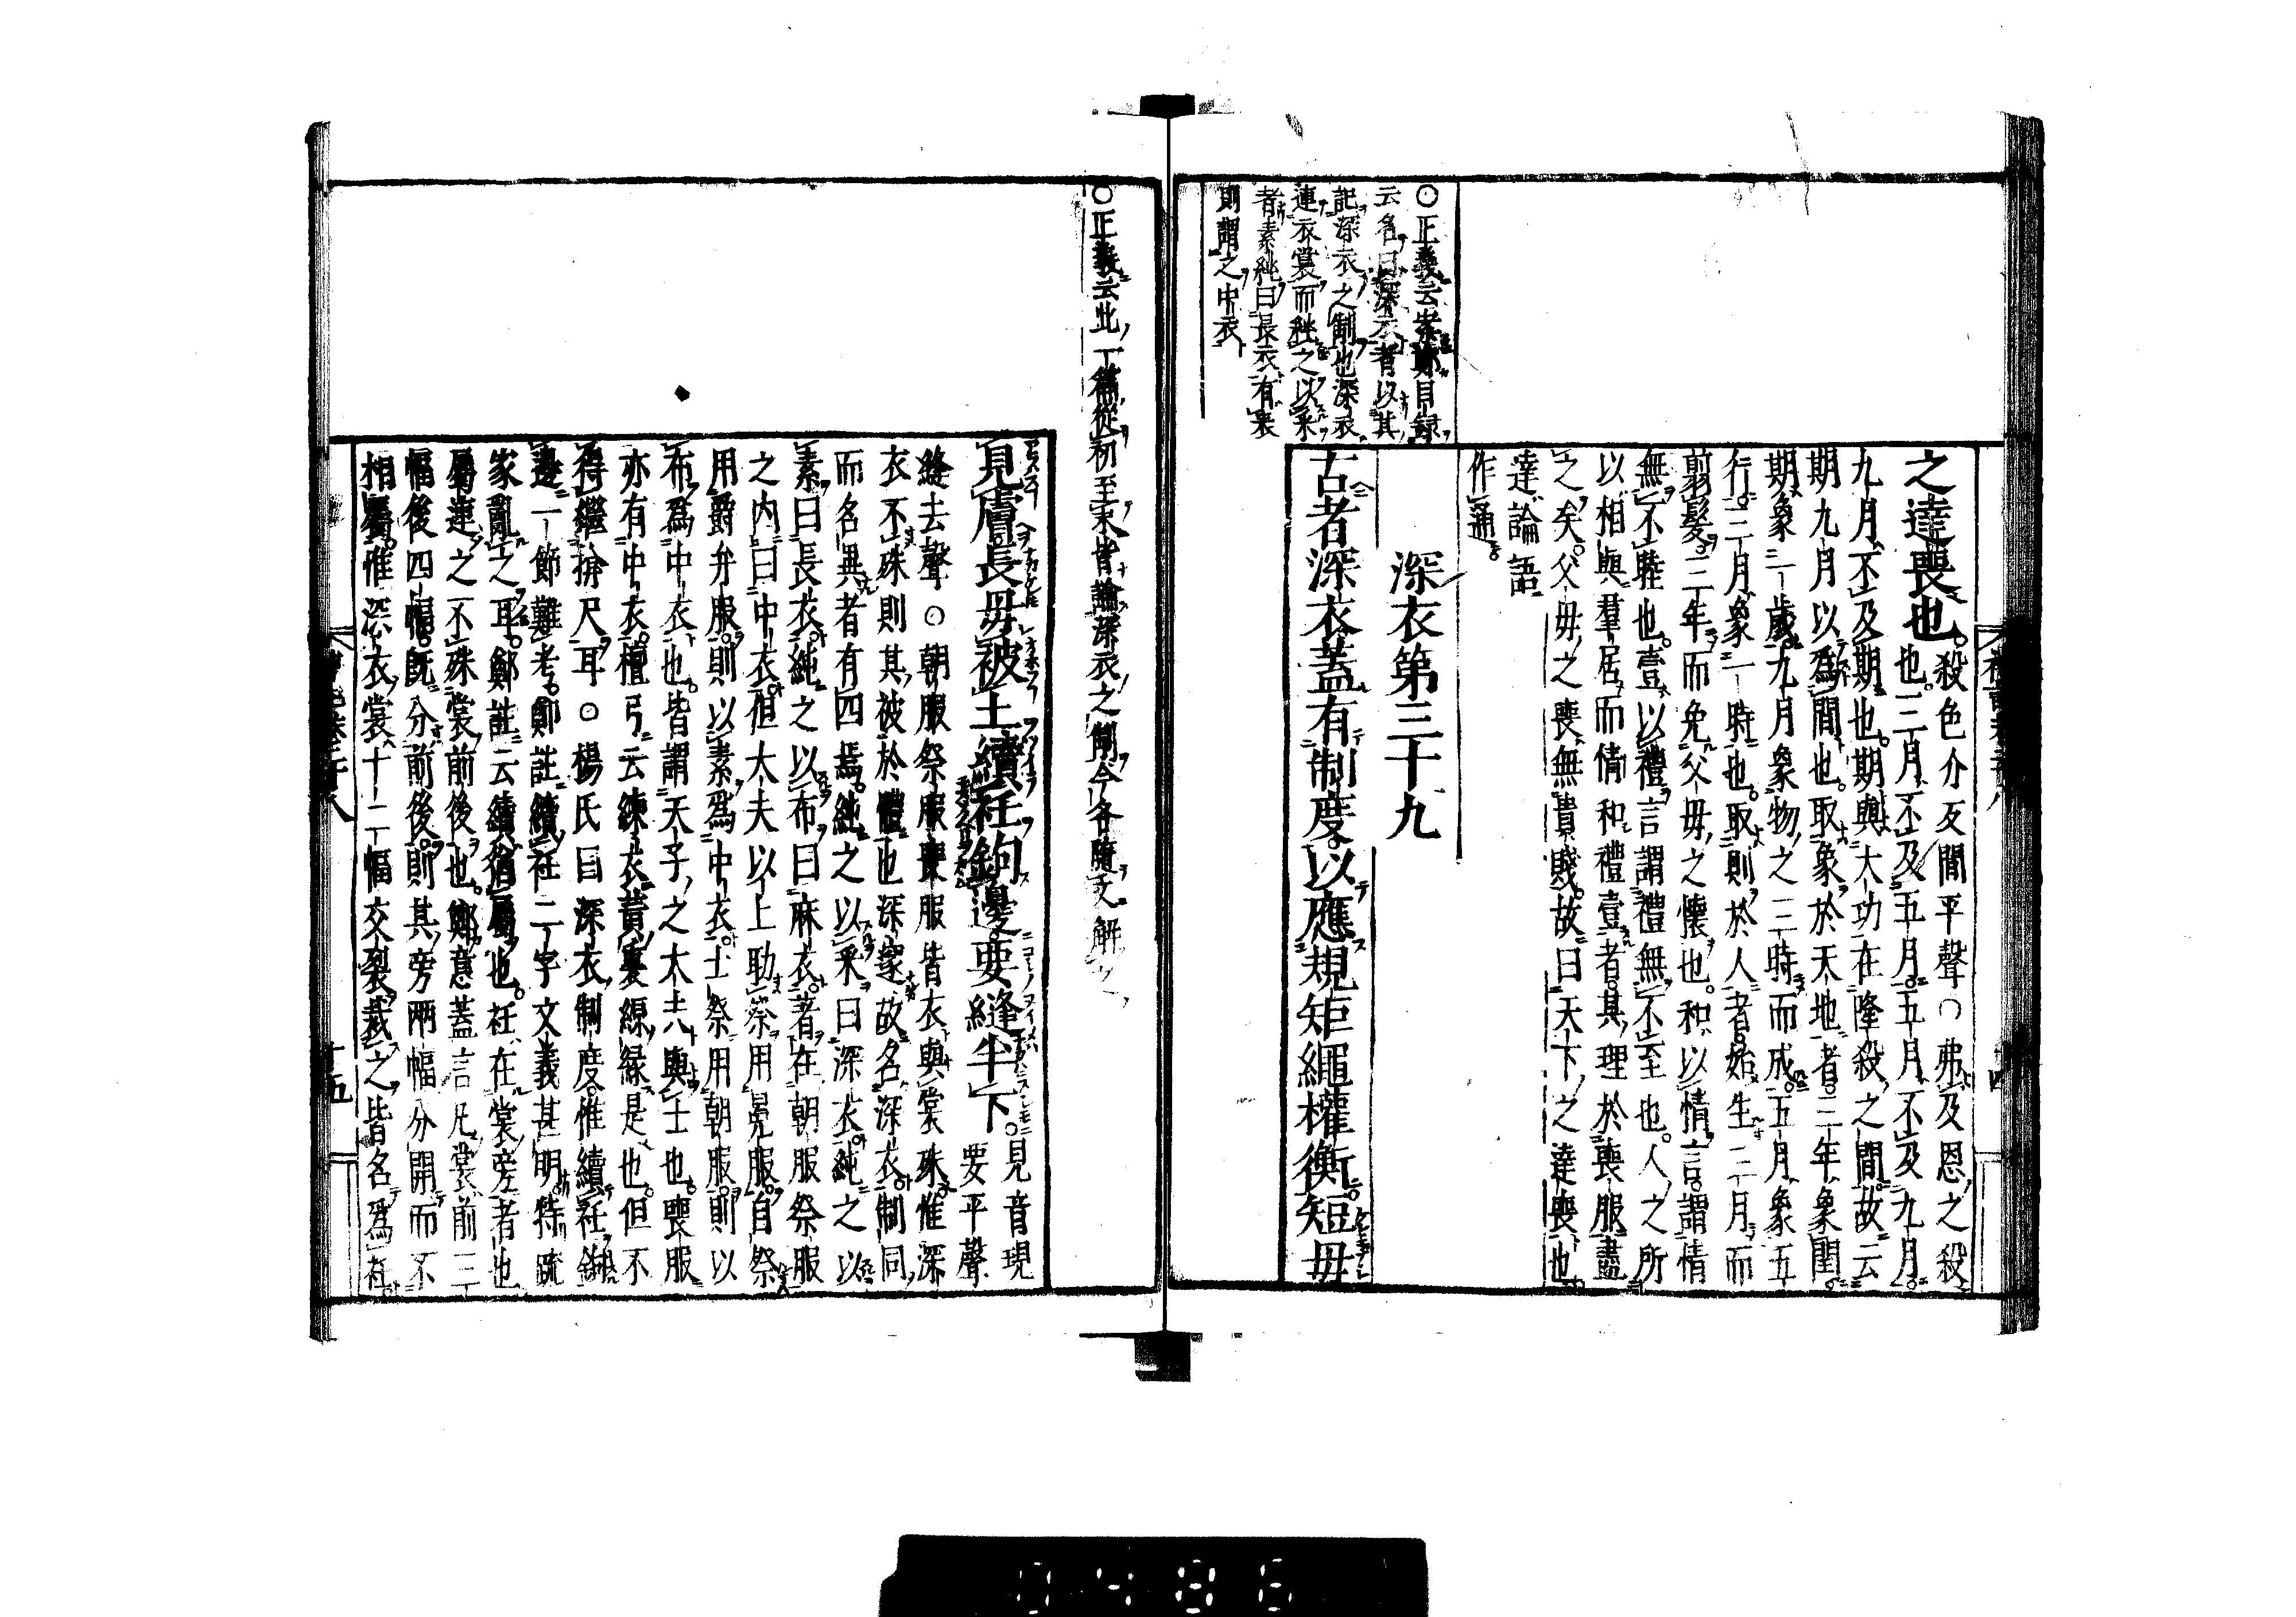 ○正義云案鄭目録
云名曰深衣者以其
記深衣之制也深衣
連衣裳而純之以采
者素純曰長衣有表
則謂之中衣
之達喪也。殺色介反間平聲○弗及恩之殺
也。三月不及五月。五月不及九月。
九月不及期也。期與大功在隆殺之間。故云
期九月以為間也。取象於天地者。三年象閏
期象一歲。九月象物之三時而成。五月象五
行。三月象一時也。取則於人者。始生三月而
翦髮。三年而免父母之懷也。和以情言。謂情
無不睦也。壹以禮言。謂禮無不至也。人之所
以相與羣居而情和禮壹者。其理於喪服盡
之矣。父母之喪無貴賤。故曰天下之達喪也
達論語
作通。
深衣第三十九
古者深衣蓋有制度。以應規矩繩權衡。短毋
○正義云此一篇從初至末皆論深衣之制今各隨文解之
見膚。長毋被土。續衽鉤邊。要縫半下。見音現
要平聲
縫去聲○朝服祭服喪服皆衣與裳殊。惟深
衣不殊則其被於體也深邃。故名深衣。制同
而名異者有四焉。純之以采曰深衣。純之以
素曰長衣。純之以布曰麻衣。著在朝服祭服
之内曰中衣。但大夫以上助祭用冕服。自祭
用爵弁服。則以素為中衣。士祭用朝服。則以
布為中衣也。皆謂天子之大夫與士也。喪服
亦有中衣。檀弓云練衣黃裏縓緣是也。但不
得繼揜尺耳。○楊氏曰深衣制度惟續衽鉤
邊一節難考。鄭註續衽二字文義甚明。特疏
家亂之耳。鄭註云續猶屬也。衽在裳旁者也
屬連之不殊裳前後也。鄭意蓋言凡裳前三
幅後四幅。既分前後。則其旁兩幅分開而不
相屬。惟深衣裳十二幅交裂裁之。皆名為衽
十五